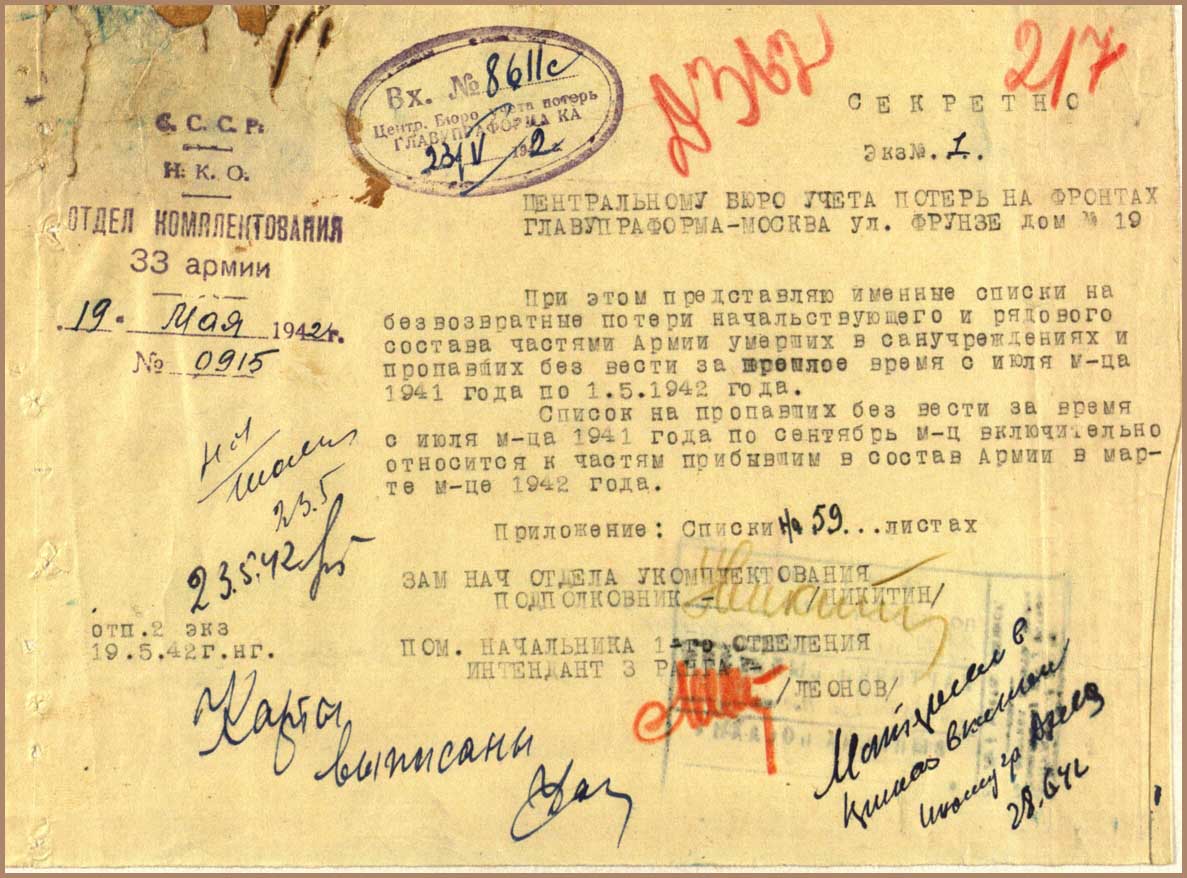 Д 3162
217
Вх. № 8611с
Центр. Бюро учета потерь
ГЛАВУПРАФОРМА КА
23/V 1942
С.С.С.Р.
Н.К.О.
ОТДЕЛ КОМПЛЕКТОВАНИЯ
33 армии
19. Мая 1942г.
№ 0915
СЕКРЕТНО
Экз№. 1.
ЦЕНТРАЛЬНОМУ БЮРО УЧЕТА ПОТЕРЬ НА ФРОНТАХ
ГЛАВУПРАФОРМА-МОСКВА ул. ФРУНЗЕ дом № 19
При этом представляю именные списки на
безвозвратные потери начальствующего и рядового
состава частями Армии умерших в санучреждениях и
пропавших без вести за прошлое время с июля м-ца
1941 года по 1.5.1942 года.
Список на пропавших без вести за время
с июля м-ца 1941 года по сентябрь м-ц включительно
относится к частям прибывшим в состав Армии в мар-
те м-це 1942 года.
Приложение: Списки на 59...листах
ЗАМ НАЧ ОТДЕЛА УКОМПЛЕКТОВАНИЯ
ПОДПОЛКОВНИК - /НИКИТИН/
ПОМ. НАЧАЛЬНИКА 1-го ОТДЕЛЕНИЯ
ИНТЕНДАНТ 3 РАНГА - /ЛЕОНОВ/
23.5
23.5.42
отп.2 экз
19.5.42г.нг.
Карты
выписаны
28.6.42